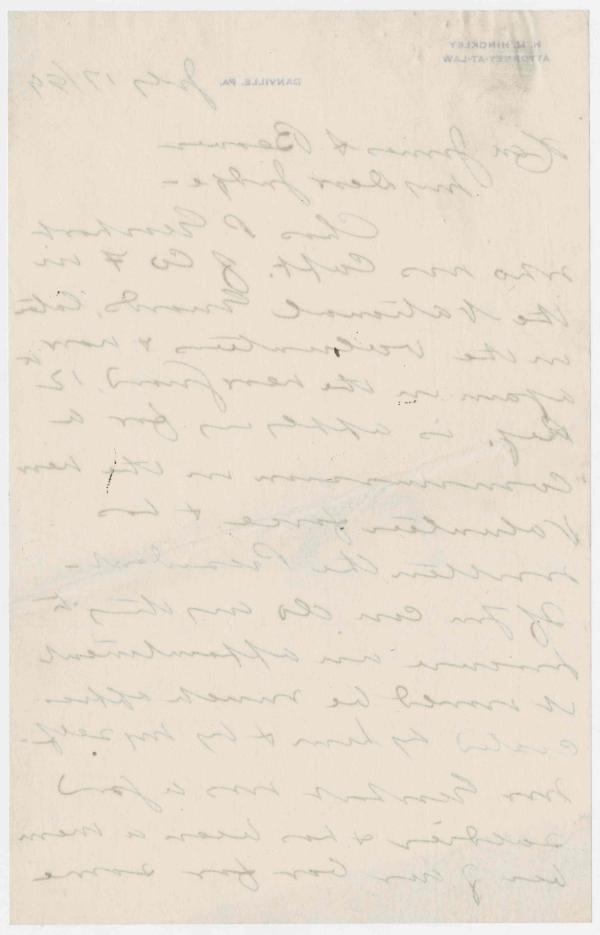 H. M. HINCKLEY
ATTORNEY-AT-LAW
DANVILLE, PA. July 17/99
Hon James A Beaver
My Dear Judge -
Chas P Gearhart
who was Capt. of Co F in
the National Guard, late
in the volunteers & now
again in the new Guard, 12
Reg. is applying for a
commission in the new
Volunteer force & has
written the President -
If you can do anything to
secure an appointment
it would be much appre
ciated by him & by myself.
Mr Gearhart was a good
soldier & has been a mem
ber of our bar for some